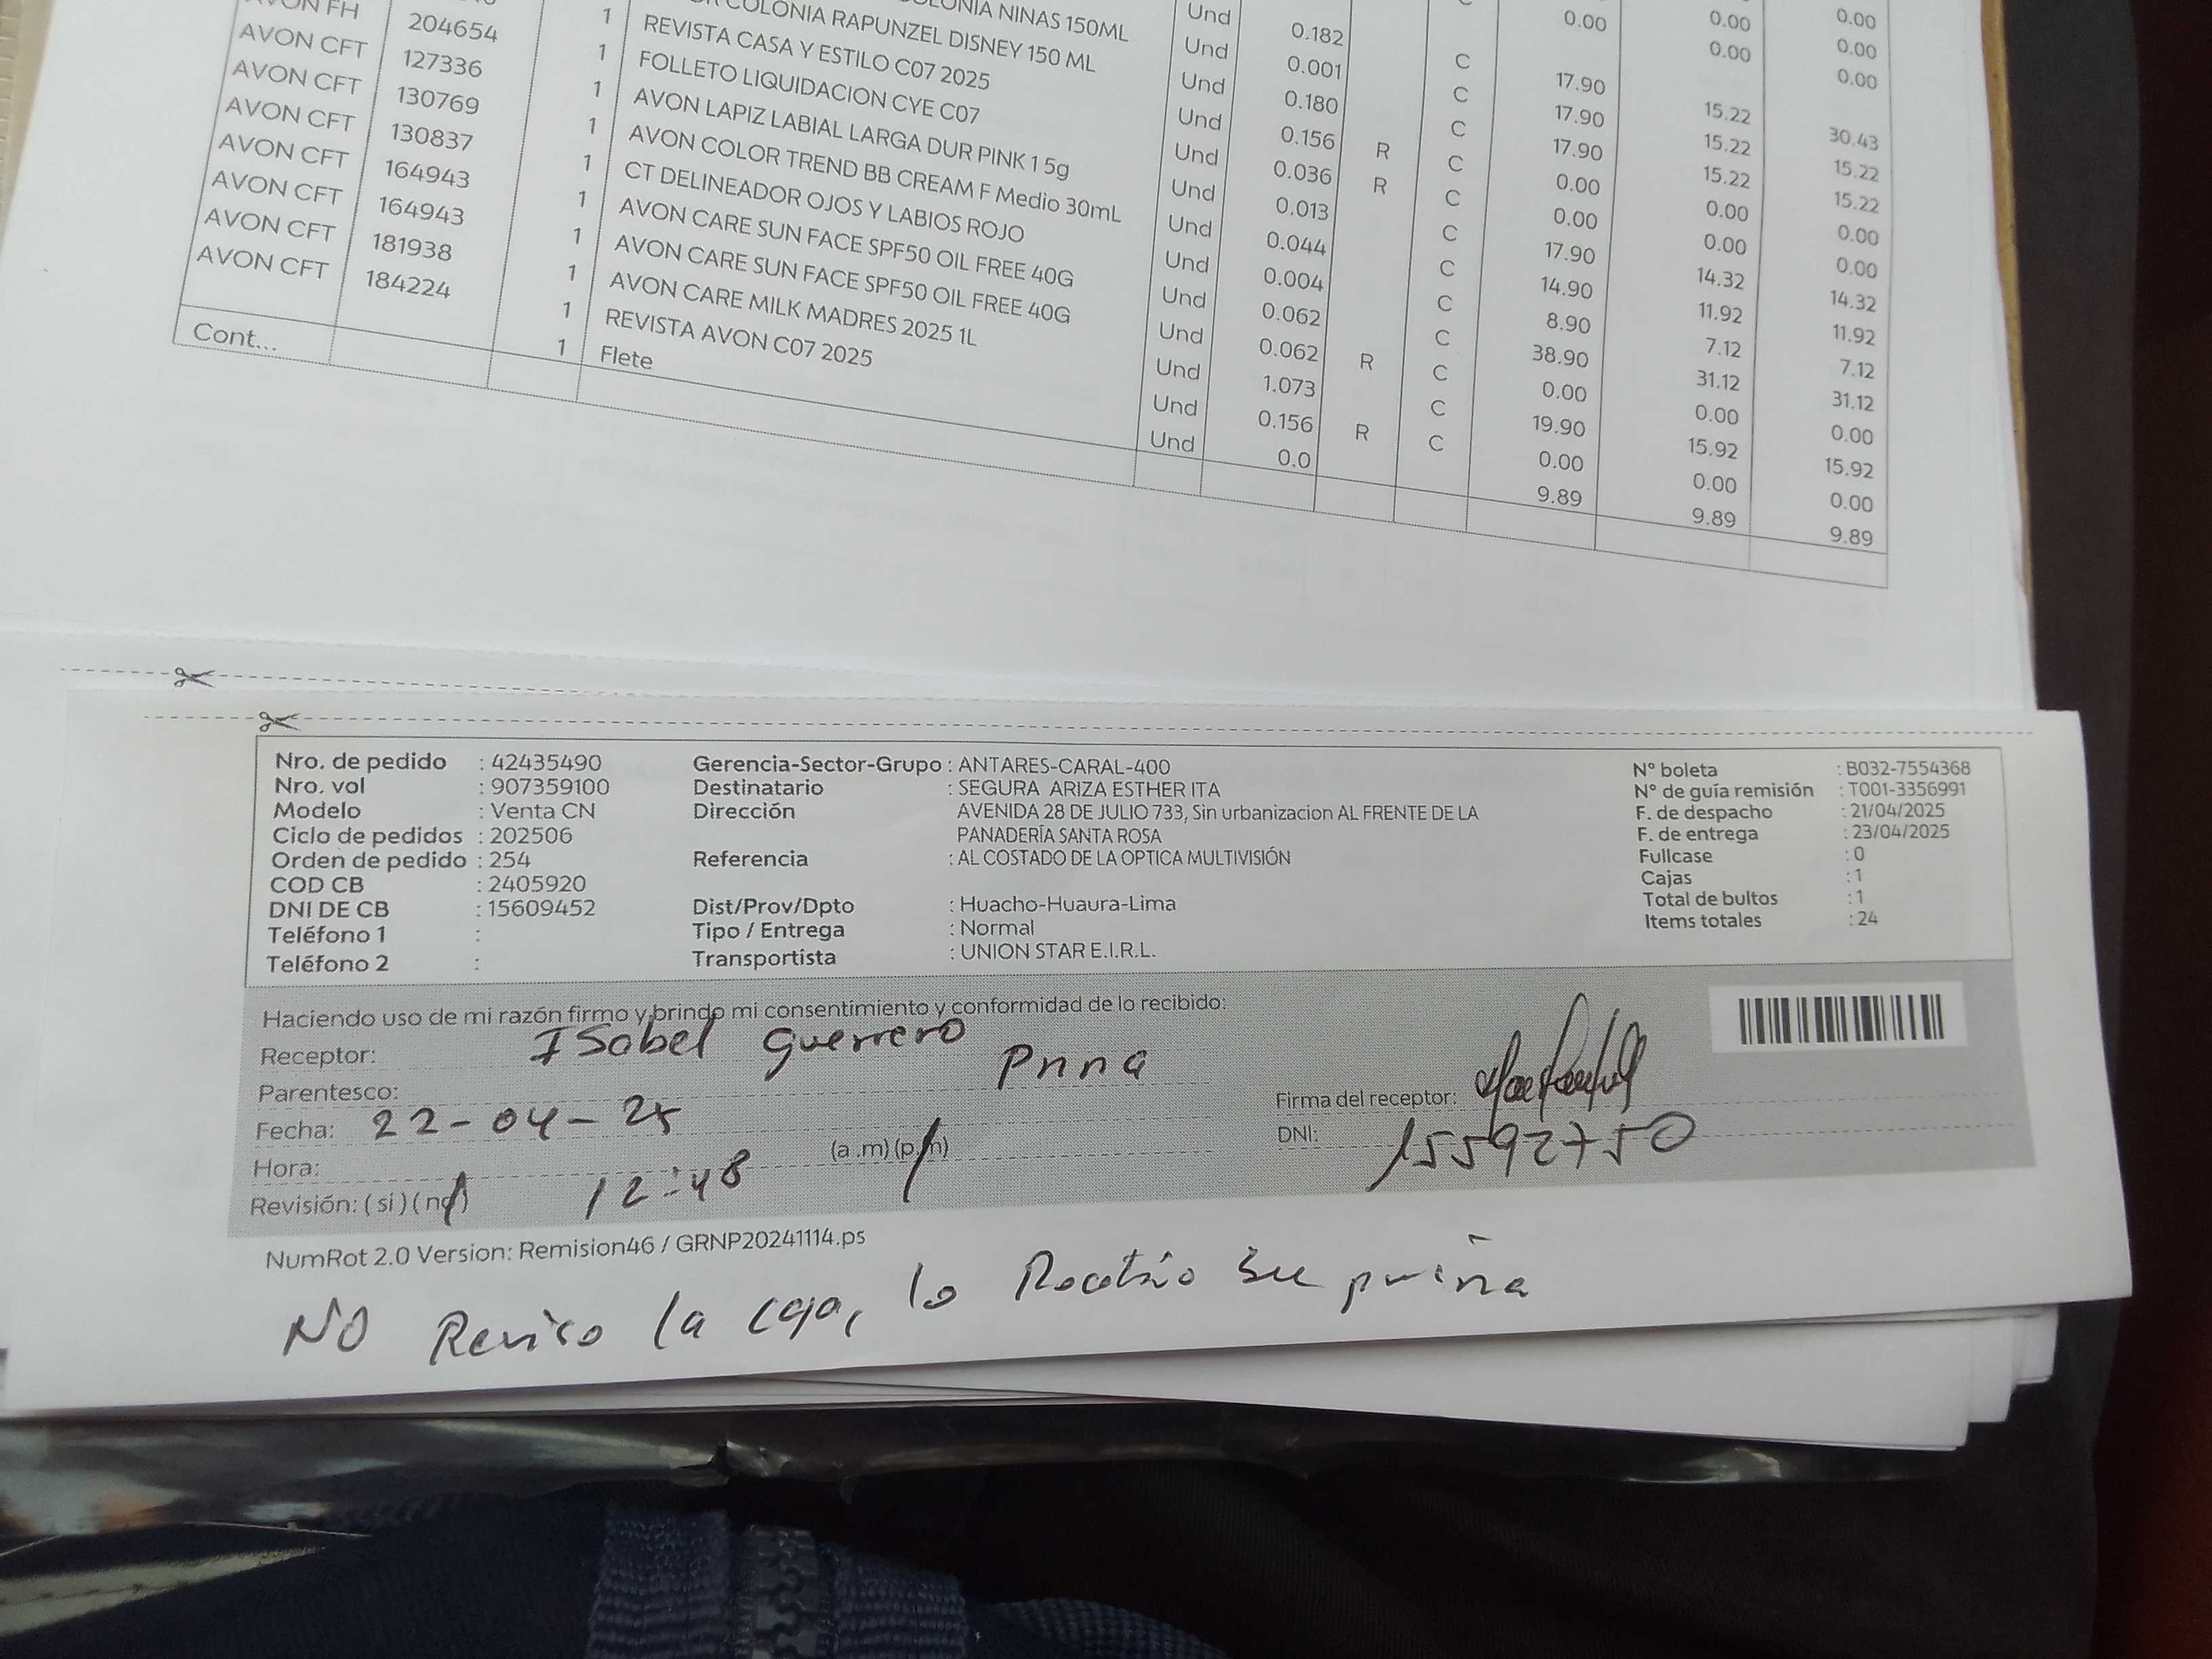 AVON FH 204654 1 COLONIA NINAS 150ML Und 0.182 C 0.00 0.00 0.00
AVON CFT 127336 1 COLONIA RAPUNZEL DISNEY 150 ML Und 0.001 C 17.90 0.00 0.00
AVON CFT 130769 1 REVISTA CASA Y ESTILO C07 2025 Und 0.180 C 17.90 15.22 0.00
AVON CFT 130837 1 FOLLETO LIQUIDACION CYE C07 Und 0.156 R C 17.90 15.22 30.43
AVON CFT 164943 1 AVON LAPIZ LABIAL LARGA DUR PINK 1 5g Und 0.036 R C 0.00 15.22 15.22
AVON CFT 164943 1 AVON COLOR TREND BB CREAM F Medio 30mL Und 0.013 C 0.00 0.00 15.22
AVON CFT 181938 1 CT DELINEADOR OJOS Y LABIOS ROJO Und 0.044 C 17.90 0.00 0.00
AVON CFT 184224 1 AVON CARE SUN FACE SPF50 OIL FREE 40G Und 0.004 C 14.90 14.32 0.00
1 AVON CARE SUN FACE SPF50 OIL FREE 40G Und 0.062 C 8.90 11.92 14.32
1 AVON CARE MILK MADRES 2025 1L Und 0.062 R C 38.90 7.12 11.92
1 REVISTA AVON C07 2025 Und 1.073 C 0.00 31.12 7.12
Cont... 1 Flete Und 0.156 R C 19.90 0.00 31.12
Und 0.0 0.00 15.92 0.00
9.89 0.00 15.92
9.89 0.00
9.89
Nro. de pedido : 42435490 Gerencia-Sector-Grupo : ANTARES-CARAL-400 N° boleta : B032-7554368
Nro. vol : 907359100 Destinatario : SEGURA ARIZA ESTHER ITA N° de guía remisión : T001-3356991
Modelo : Venta CN Dirección AVENIDA 28 DE JULIO 733, Sin urbanizacion AL FRENTE DE LA F. de despacho : 21/04/2025
Ciclo de pedidos : 202506 PANADERÍA SANTA ROSA F. de entrega : 23/04/2025
Orden de pedido : 254 Referencia : AL COSTADO DE LA OPTICA MULTIVISIÓN Fullcase : 0
COD CB : 2405920 Cajas : 1
DNI DE CB : 15609452 Dist/Prov/Dpto : Huacho-Huaura-Lima Total de bultos : 1
Teléfono 1 : Tipo / Entrega : Normal Items totales : 24
Teléfono 2 : Transportista : UNION STAR E.I.R.L.
Haciendo uso de mi razón firmo y brindo mi consentimiento y conformidad de lo recibido:
Receptor: ISabel Guerrero
Parentesco: Prima
Firma del receptor:
Fecha: 22-04-25
DNI: 15592750
Hora: 12:48 (a .m) (p.m)
Revisión: ( si ) ( no )
NumRot 2.0 Version: Remision46 / GRNP20241114.ps
NO Reviso la caja, lo su